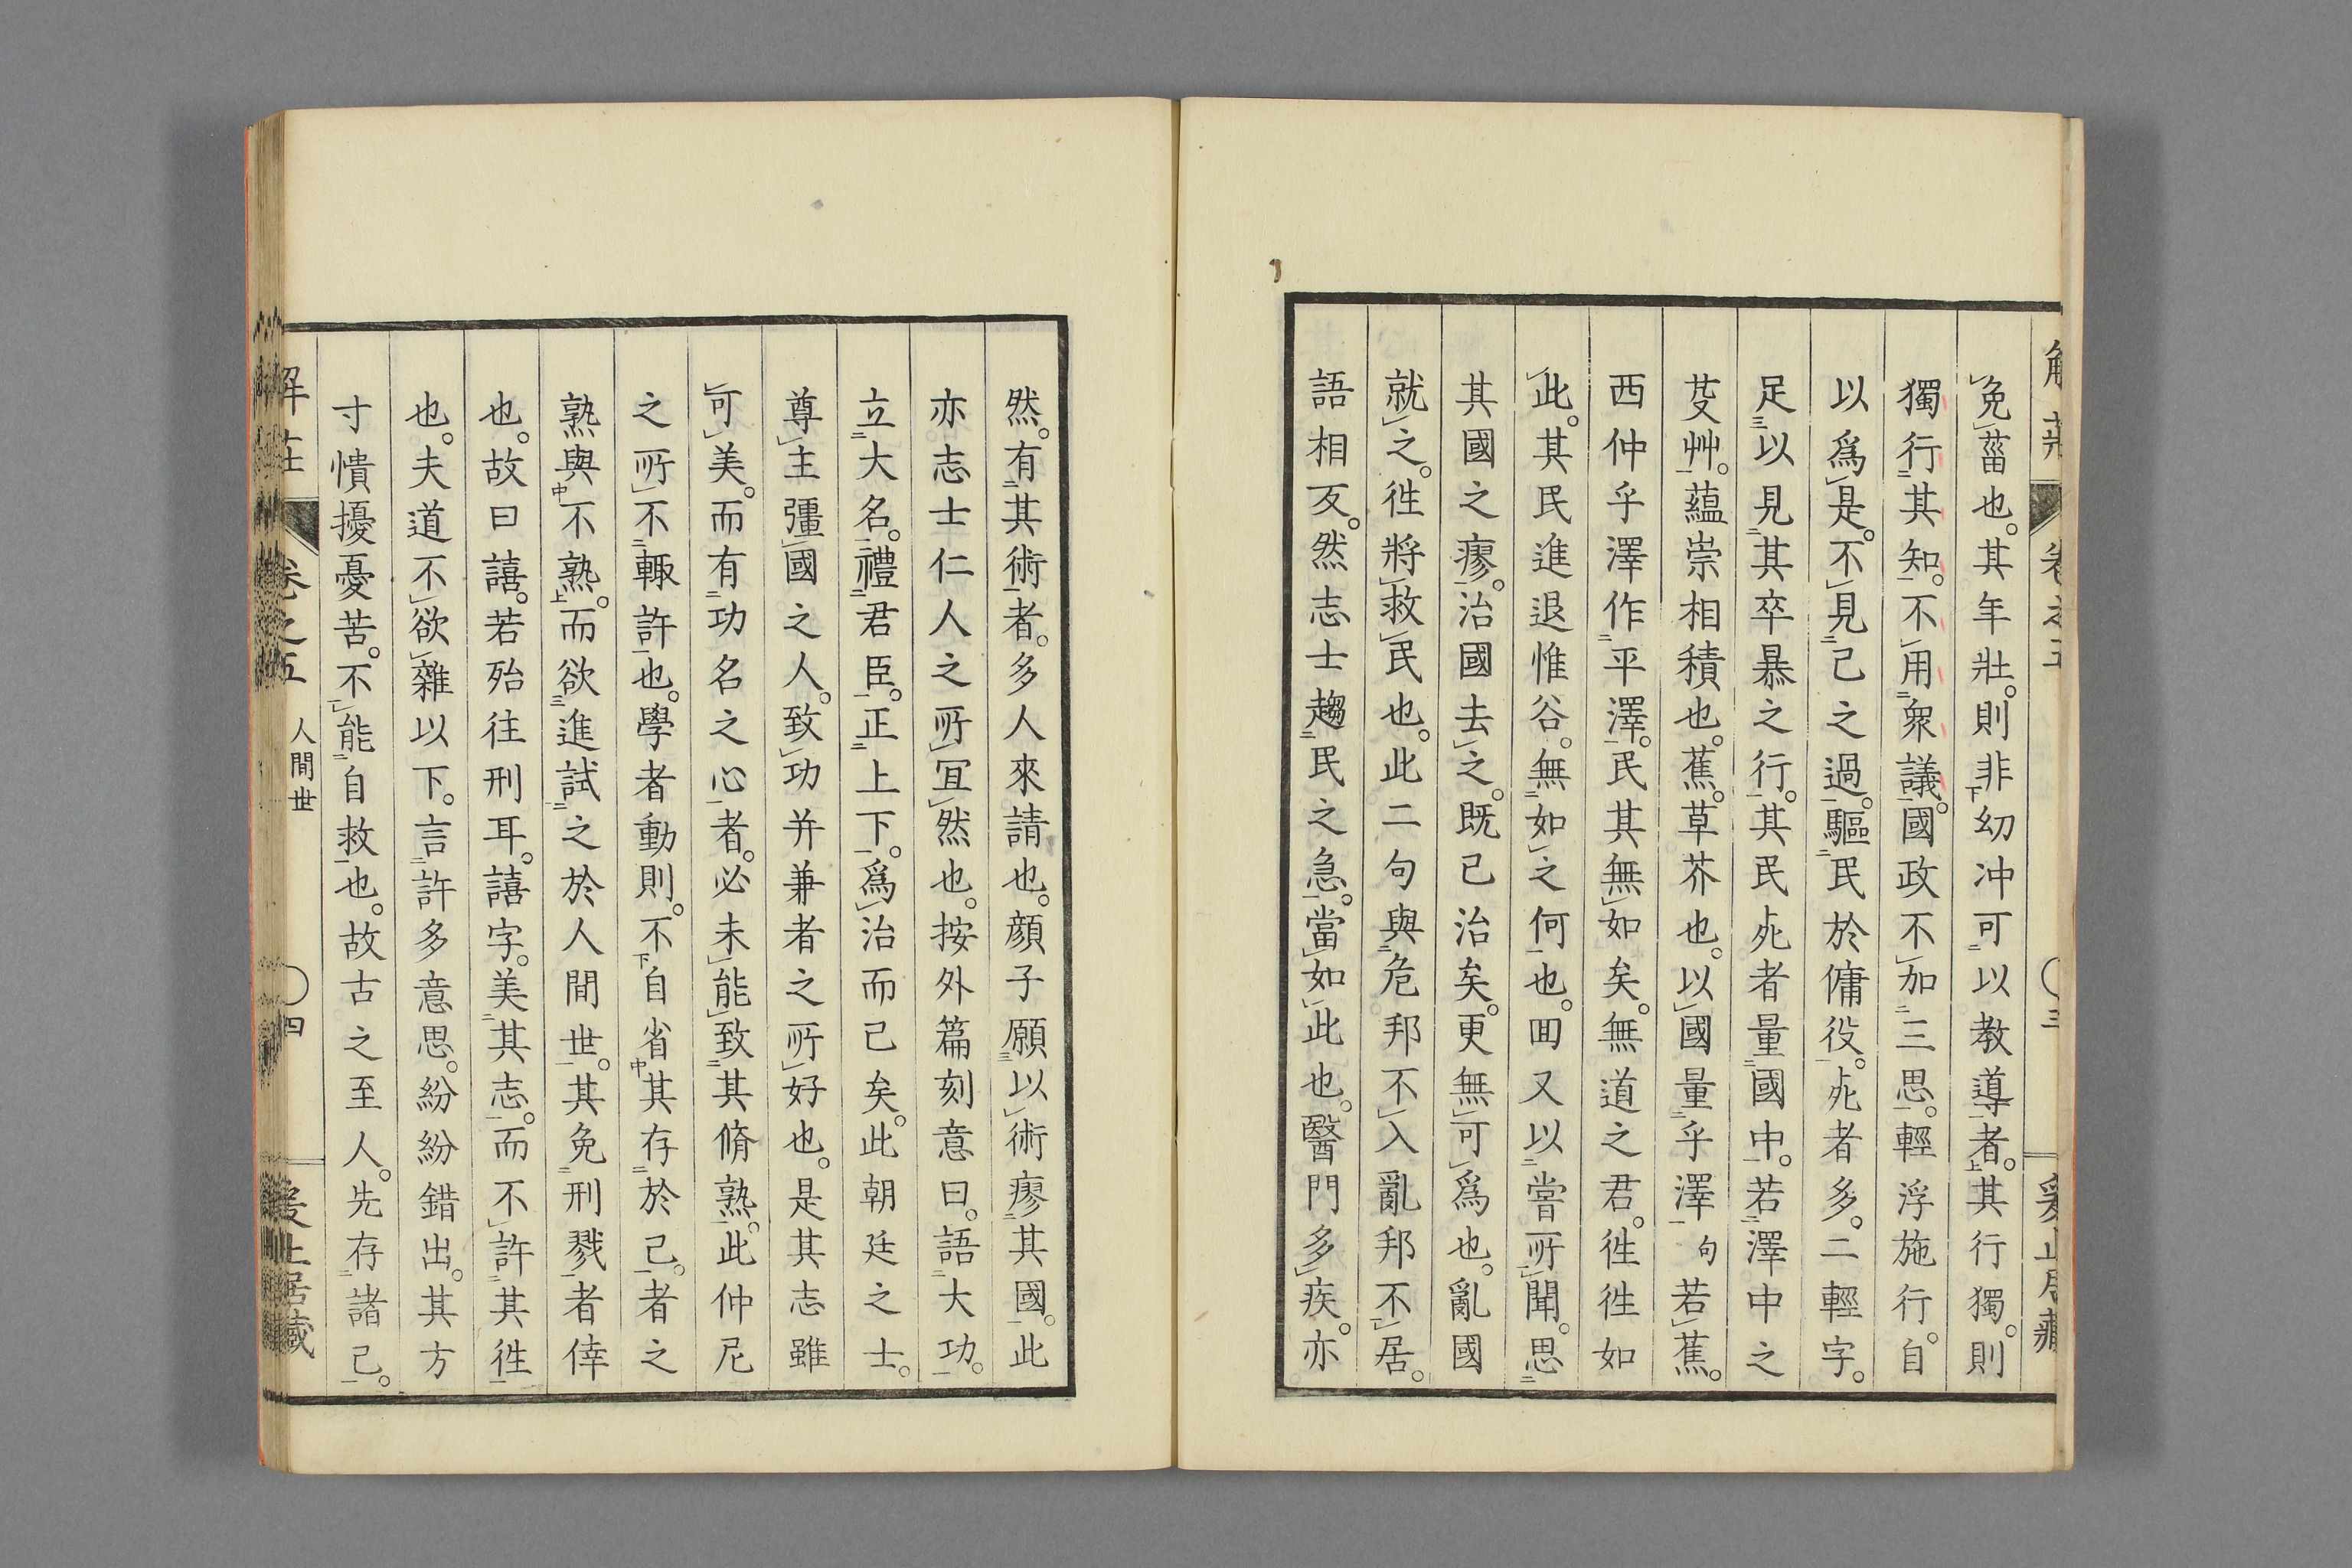 免菑也。其年壯。則非幼冲可以教導者。其行獨。則
獨行其知。不用衆議。國政不加三思。輕浮施行。自
以爲是。不見己之過。驅民於傭役。死者多。二輕字。
足以見其卒暴之行。其民死者量國中。若澤中之
芟艸。蘊崇相積也。蕉。草芥也。以國量乎澤句若蕉。
西仲乎澤作平澤。民其無如矣。無道之君。徃徃如
此。其民進退惟谷。無如之何也。囬又以嘗所聞。思
其國之瘳。治國去之。既已治矣。更無可爲也。亂國
就之。徃將救民也。此二句與危邦不入亂邦不居。
語相反。然志士趨民之急。當如此也。醫門多疾。亦
然。有其術者。多人來請也。顔子願以術瘳其國。此
亦志士仁人之所宜然也。按外篇刻意曰。語大功。
立大名。禮君臣。正上下。爲治而已矣。此朝廷之士。
尊主彊國之人。致功并兼者之所好也。是其志雖
可美。而有功名之心者。必未能致其脩熟。此仲尼
之所不輙許也。學者動則。不自省其存於己者之
熟與不熟。而欲進試之於人間世。其免刑戮者倖
也。故曰譆。若殆往刑耳。譆字。美其志。而不許其徃
也。夫道不欲雜以下。言許多意思。紛紛錯出。其方
寸憒擾憂苦。不能自救也。故古之至人。先存諸己。
解莊 卷之五 人間世 四